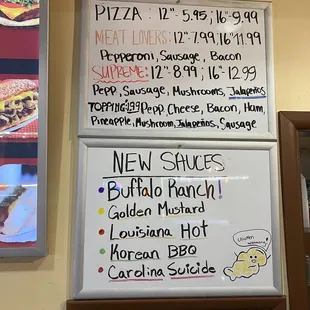 PIZZA: 12"-5.95; 16"-9.99
MEAT LOVERS: 12"-7.99; 16"11.99
Pepperoni, Sausage, Bacon
SUPREME: 12"-8.99; 16"-12.99
Pepp, Sausage, Mushrooms, Jalapeños
TOPPING: .99 Pepp, Cheese, Bacon, Ham,
Pineapple, Mushroom, Jalapeños, Sausage
NEW SAUCES
• Buffalo Ranch!
• Golden Mustard
• Louisiana Hot
• Korean BBQ
• Carolina Suicide